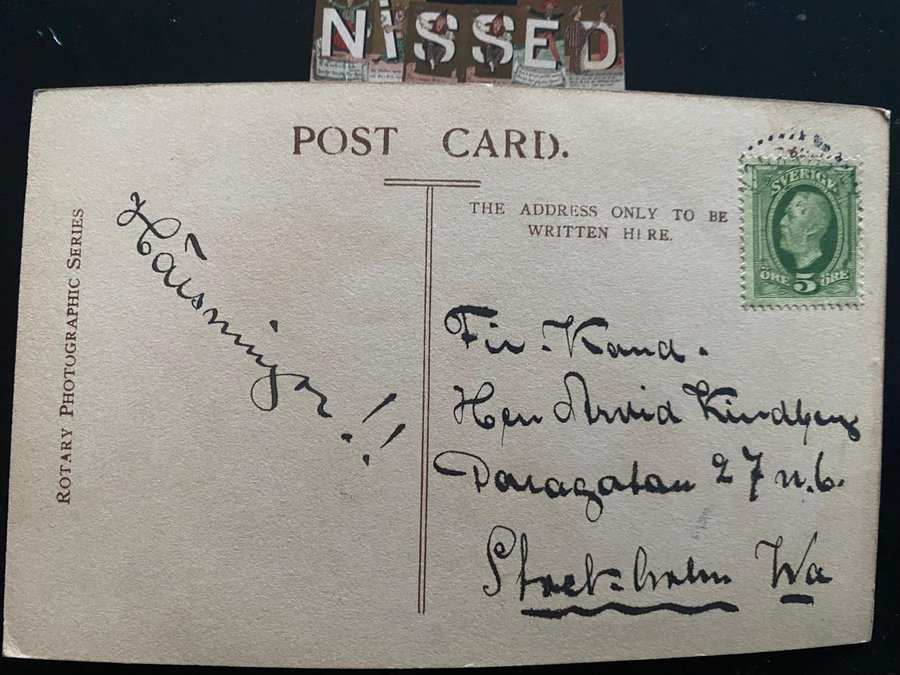 NiSSED
POST CARD.
THE ADDRESS ONLY TO BE
WRITTEN HERE.
SVERIGE
ÖRE 5 ÖRE
ROTARY PHOTOGRAPHIC SERIES
Hälsningar!!
Fil. Kand.
Herr Arvid Lindberg
27 n.b.
Stockholm Va